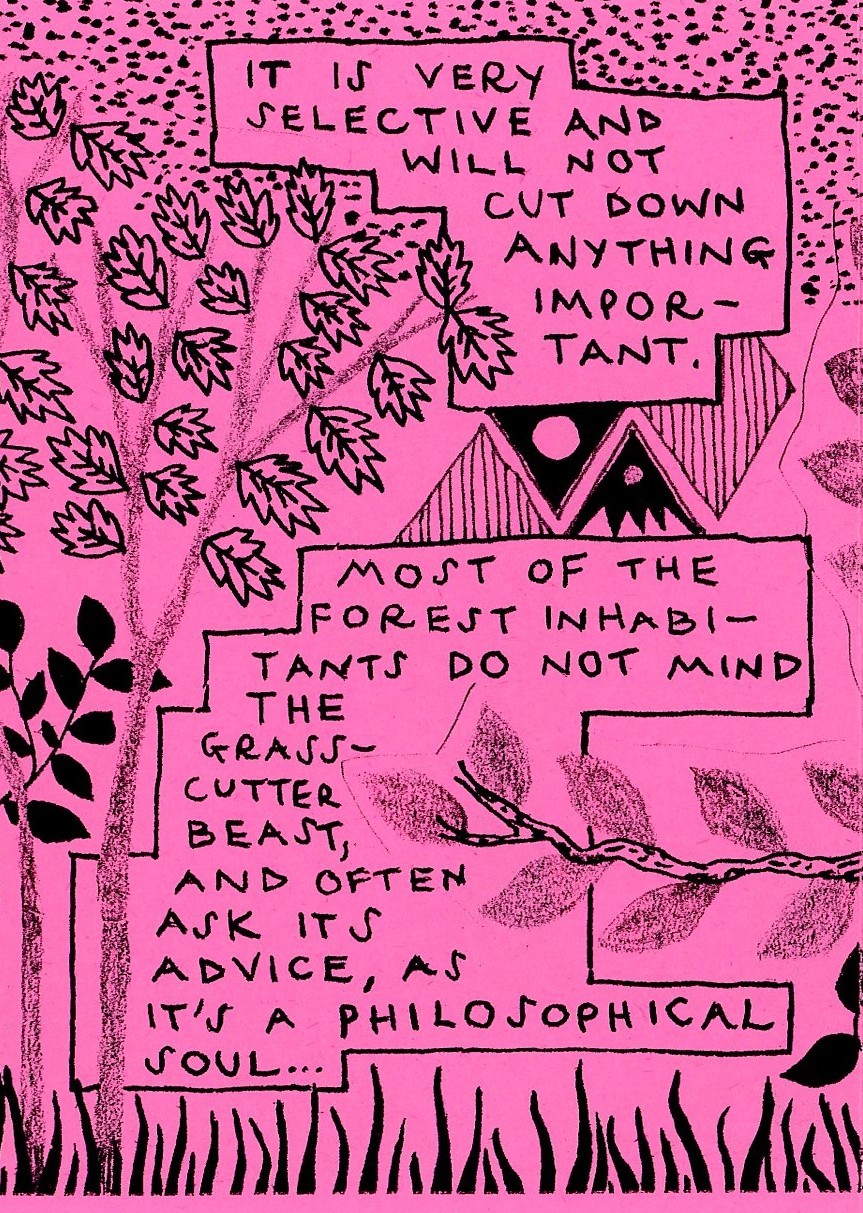 IT IS VERY
SELECTIVE AND
WILL NOT
CUT DOWN
ANYTHING
IMPOR-
TANT.
MOST OF THE
FOREST INHABI-
TANTS DO NOT MIND
THE
GRASS-
CUTTER
BEAST,
AND OFTEN
ASK ITS
ADVICE, AS
IT'S A PHILOSOPHICAL
SOUL...